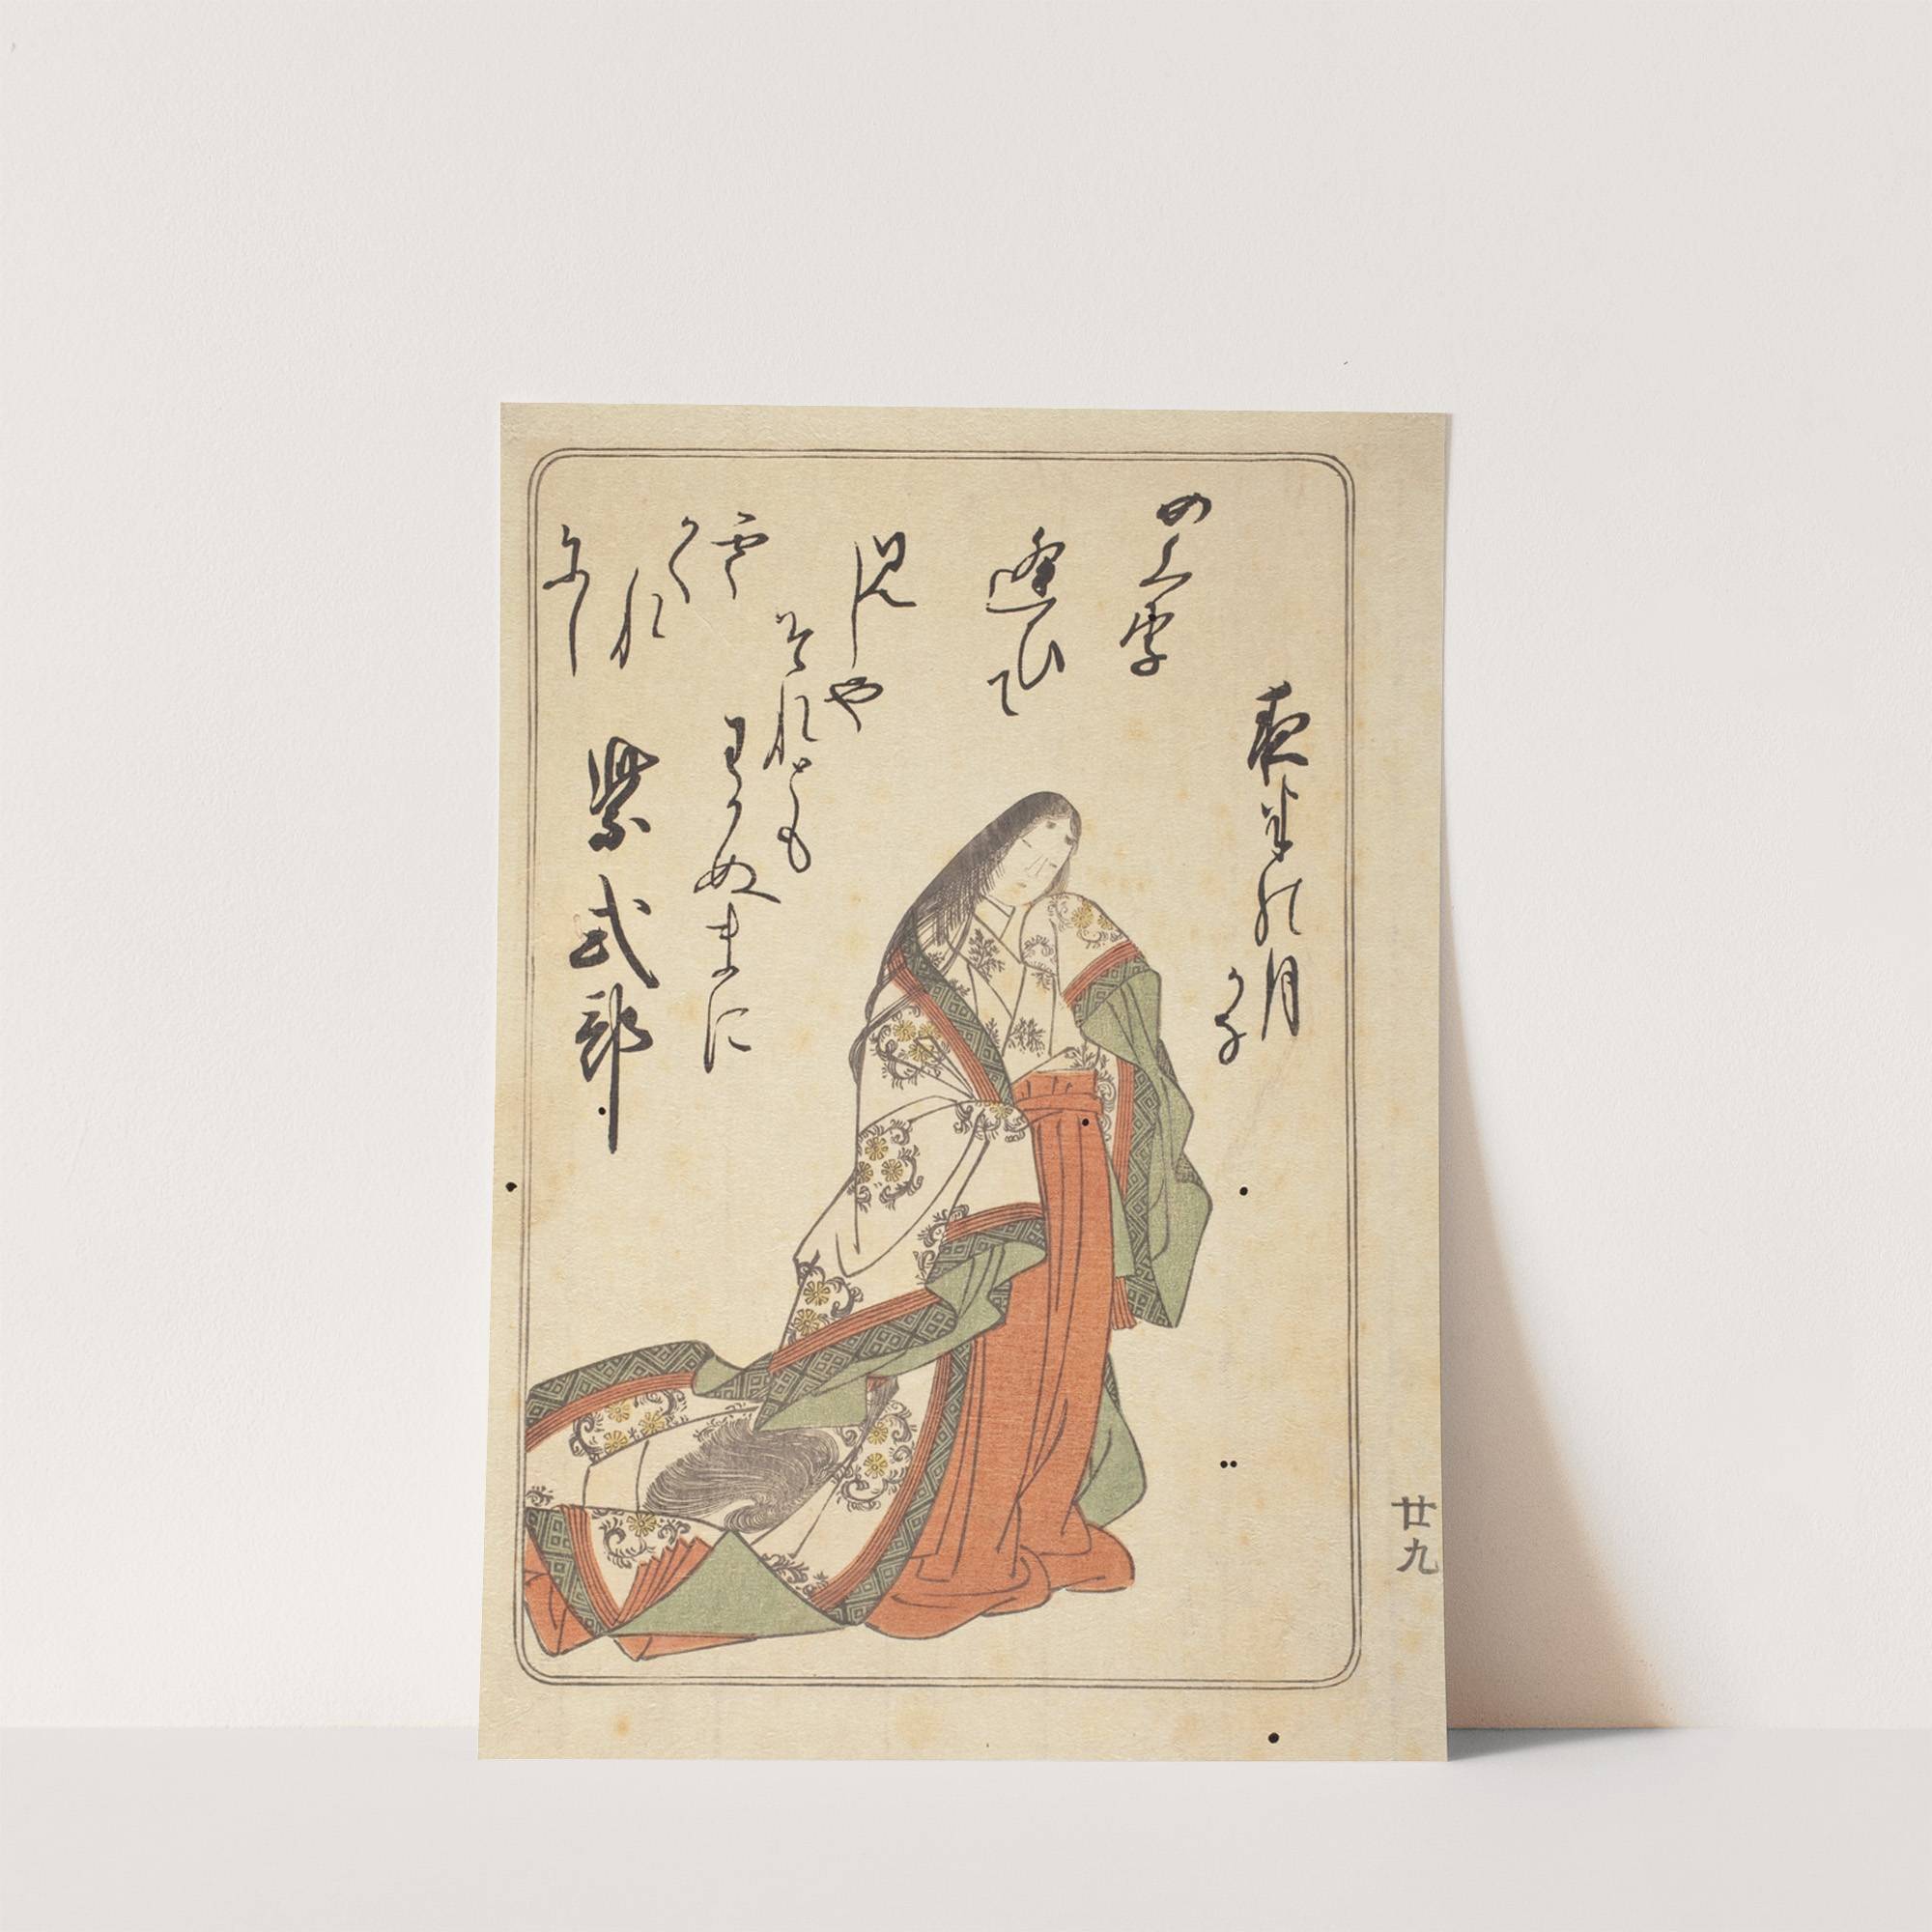 めくり
逢ひて
見しや
それとも
わかぬまに
雲
かくれ
にし
夜半の月
かな
紫式部
廿九